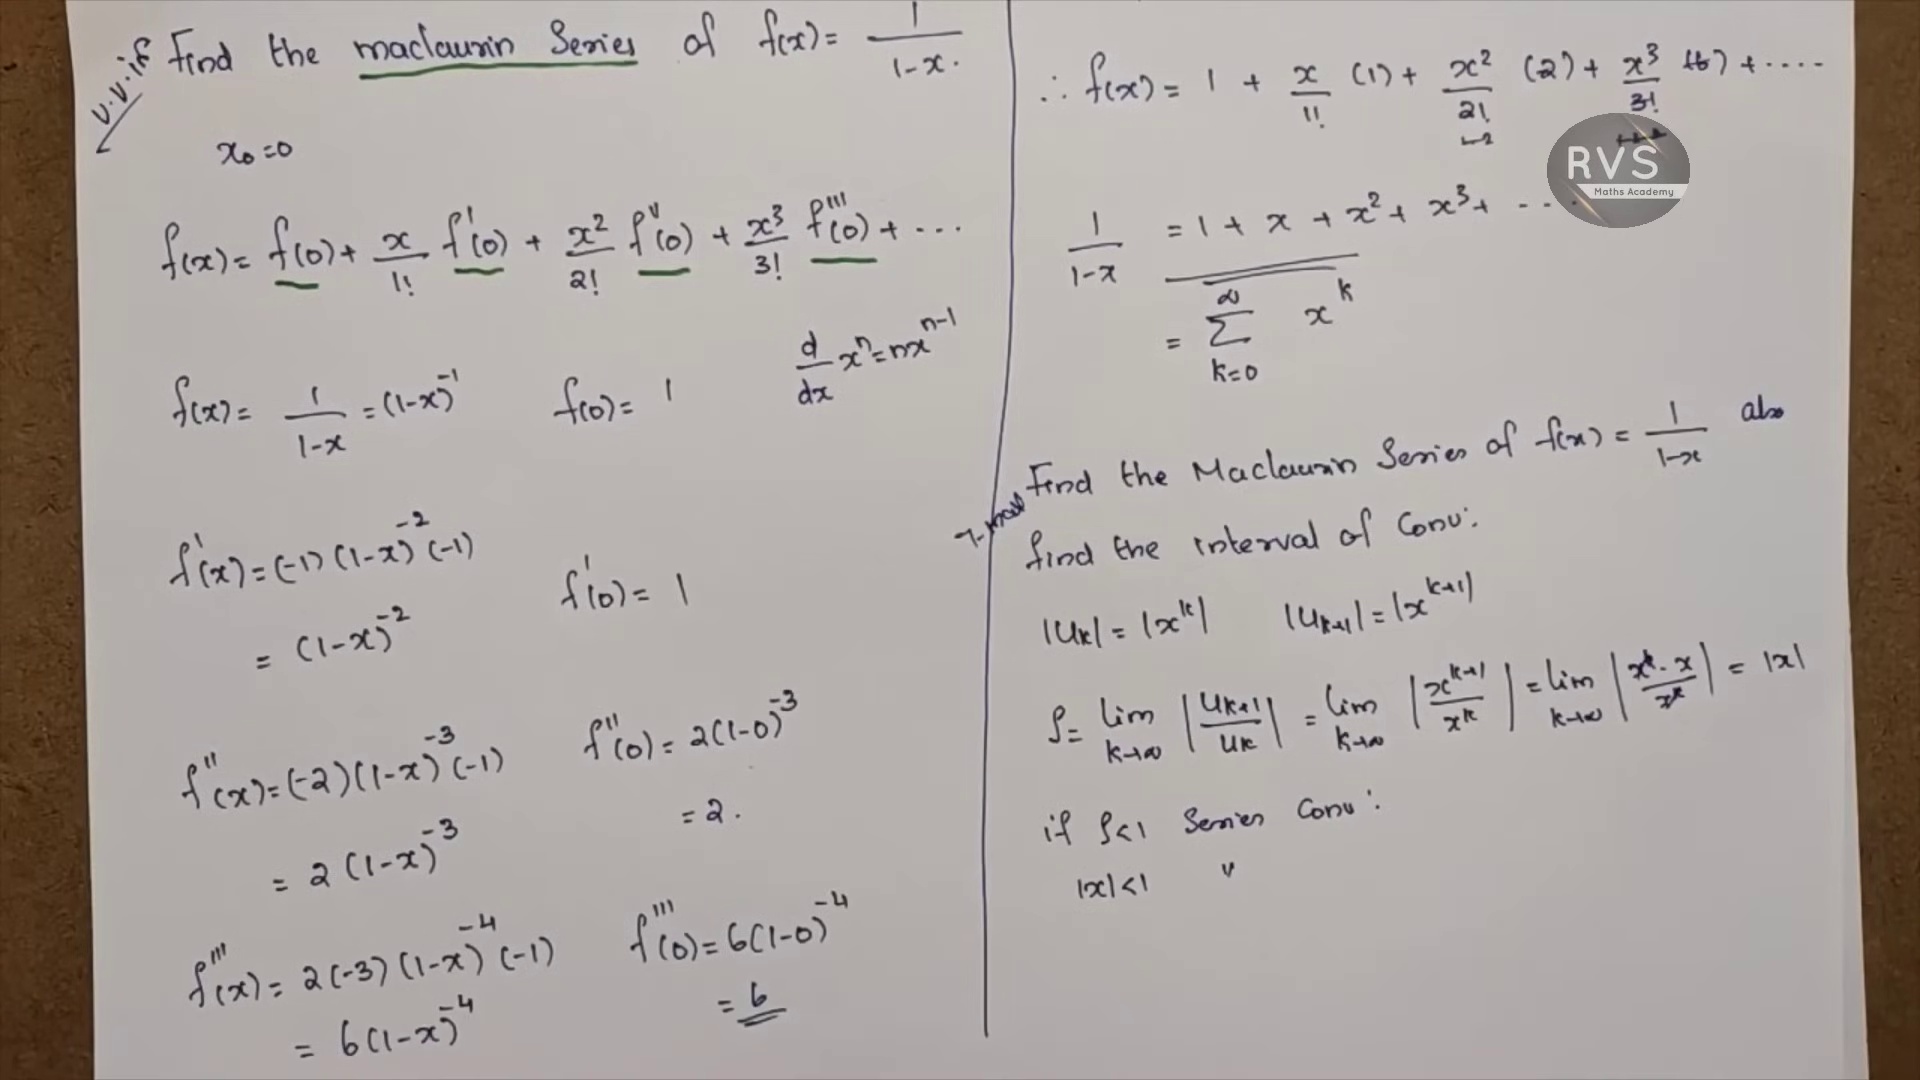 V.V.if Find the maclaurin Series of f(x) = 1/(1-x).
x₀=0
f(x) = f(0) + x/1! f'(0) + x²/2! f''(0) + x³/3! f'''(0) + ...
d/dx xⁿ = nxⁿ⁻¹
f(x) = 1/(1-x) = (1-x)⁻¹ f(0) = 1
f'(x) = (-1)(1-x)⁻²(-1) f'(0) = 1
= (1-x)⁻²
f''(x) = (-2)(1-x)⁻³(-1) f''(0) = 2(1-0)⁻³
= 2(1-x)⁻³ = 2.
f'''(x) = 2(-3)(1-x)⁻⁴(-1) f'''(0) = 6(1-0)⁻⁴
= 6(1-x)⁻⁴ = 6
∴ f(x) = 1 + x/1! (1) + x²/2! (2) + x³/3! (6) + ....
RVS
Maths Academy
1/(1-x) = 1 + x + x² + x³ + ...
= ∑_{k=0}^{∞} x^k
Find the Maclaurin Series of f(x) = 1/(1-x) also
find the interval of Conv:
|U_k| = |x^k| |U_{k+1}| = |x^{k+1}|
ρ = lim_{k→∞} |U_{k+1}/U_k| = lim_{k→∞} |x^{k+1}/x^k| = lim_{k→∞} |x^k·x/x^k| = |x|
if ρ<1 Series Conv:
|x|<1 "